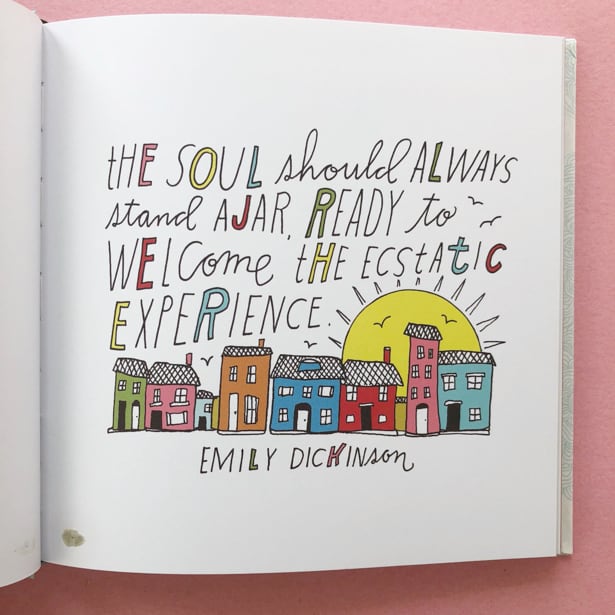 tHE SOUL should ALWAYS
stand AJAR, READY to
WELCome tHE ECStatIC
EXPERIENCE.
EMILY DICKINson